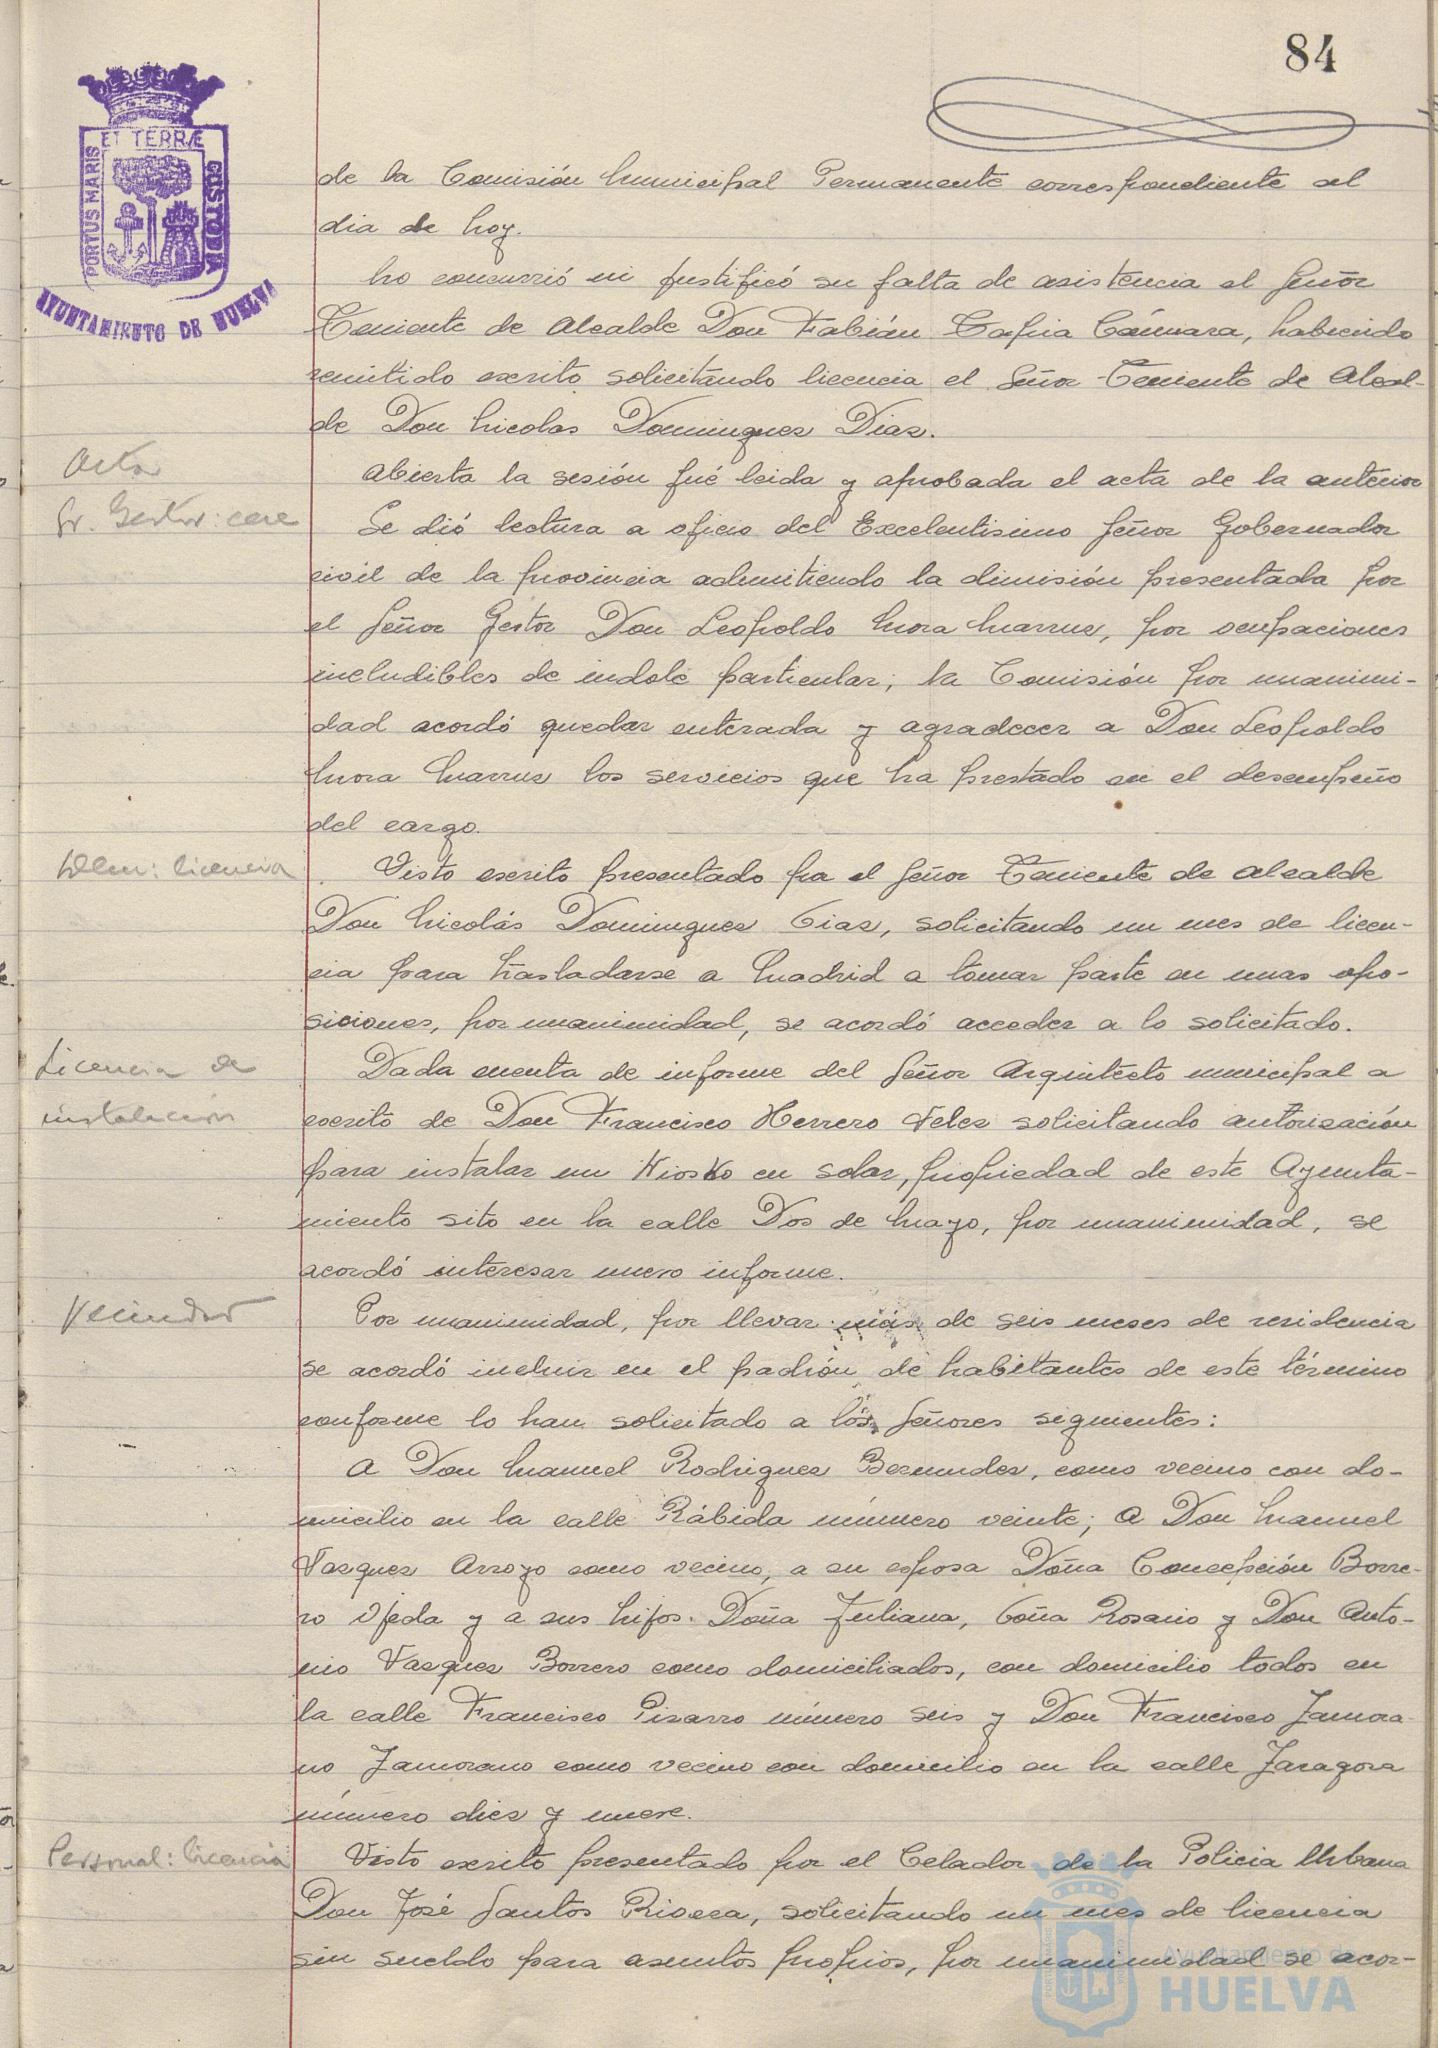 84
ET TERRÆ
PORTUS MARIS
CUSTODIA
AYUNTAMIENTO DE HUELVA
de la Comisión Municipal Permanente correspondiente al
dia de hoy.
No concurrió ni justificó su falta de asistencia el Señor
Teniente de Alcalde Don Fabián Tapia Cámara, habiendo
remitido escrito solicitando licencia el Señor Teniente de Alcal-
de Don Nicolas Dominguez Diaz.
Acta
Abierta la sesión fué leida y aprobada el acta de la anterior
Sr. Gestor: cese
Se dió lectura a oficio del Excelentisimo Señor Gobernador
civil de la provincia admitiendo la dimisión presentada por
el Señor Gestor Don Leopoldo Mora Marrus, por ocupaciones
ineludibles de indole particular; la Comisión por unanimi-
dad acordó quedar enterada y agradecer a Don Leopoldo
Mora Marrus los servicios que ha prestado en el desempeño
del cargo.
Idem: licencia
Visto escrito presentado por el Señor Teniente de Alcalde
Don Nicolás Dominguez Diaz, solicitando un mes de licen-
cia para trasladarse a Madrid a tomar parte en unas opo-
siciones, por unanimidad, se acordó acceder a lo solicitado.
Licencia de
instalación
Dada cuenta de informe del Señor Arquitecto municipal a
escrito de Don Francisco Herrero Velez solicitando autorización
para instalar un Kiosko en solar, propiedad de este Ayunta-
miento sito en la calle Dos de Mayo, por unanimidad, se
acordó interesar nuevo informe.
Vecindad
Por unanimidad, por llevar más de seis meses de residencia
se acordó incluir en el padrón de habitantes de este término
conforme lo han solicitado a los Señores siguientes:
A Don Manuel Rodriguez Bermudez, como vecino con do-
micilio en la calle Rábida número veinte; a Don Manuel
Vasquez Arroyo como vecino, a su esposa Doña Concepción Borre-
ro Ojeda y a sus hijos. Doña Juliana, Doña Rosario y Don Anto-
nio Vasquez Borrero como domiciliados, con domicilio todos en
la calle Francisco Pizarro número seis y Don Francisco Zamora
no Zamorano como vecino con domicilio en la calle Zaragoza
número diez y nueve.
Personal: licencia
Visto escrito presentado por el Celador de la Policia Urbana
Don José Santos Rivera, solicitando un mes de licencia
sin sueldo para asuntos propios, por unanimidad se acor-
Ayuntamiento de
HUELVA